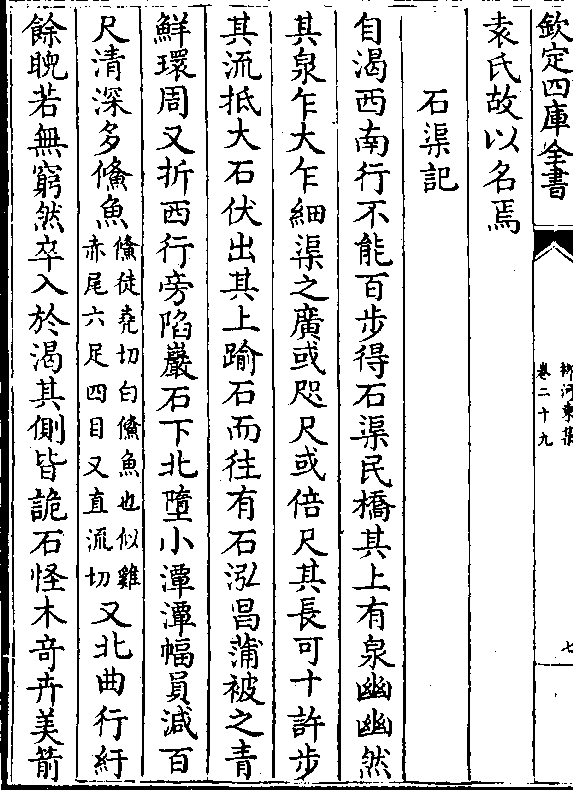 欽定四庫全書
柳河東集
卷二十九
七
袁氏故以名焉
石渠記
自渴西南行不能百步得石渠民橋其上有泉幽幽然
其泉乍大乍細渠之廣或咫尺或倍尺其長可十許步
其流抵大石伏出其上踰石而往有石泓昌蒲被之青
鮮環周又折西行旁陷巖石下北墮小潭潭幅員減百
尺清深多鯈魚鯈徒堯切白鯈魚也似雞赤尾六足四目又直流切又北曲行紆
餘睨若無窮然卒入於渴其側皆詭石怪木竒卉美箭